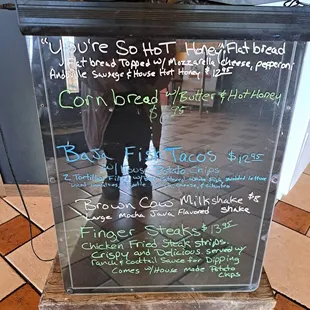 "You're So HoT Honey" Flat bread
Flat bread Topped w/ Mozzarella cheese, pepperoni
And Sausage & House Hot Honey $12.95
Corn bread w/Butter & Hot Honey
Baja Fish Tacos $12.95
w/ House Potato Chips
2 Tortillas Filled w/ White Fish, shredded lettuce
cheese, & cilantro
Brown Cow Milkshake $8
Large Mocha Java Flavored shake
Finger Steaks $13.95
Chicken Fried Steak strips
Crispy and Delicious. served w/
ranch & Cocktail Sauce for Dipping
Comes w/House made Potato
Chips